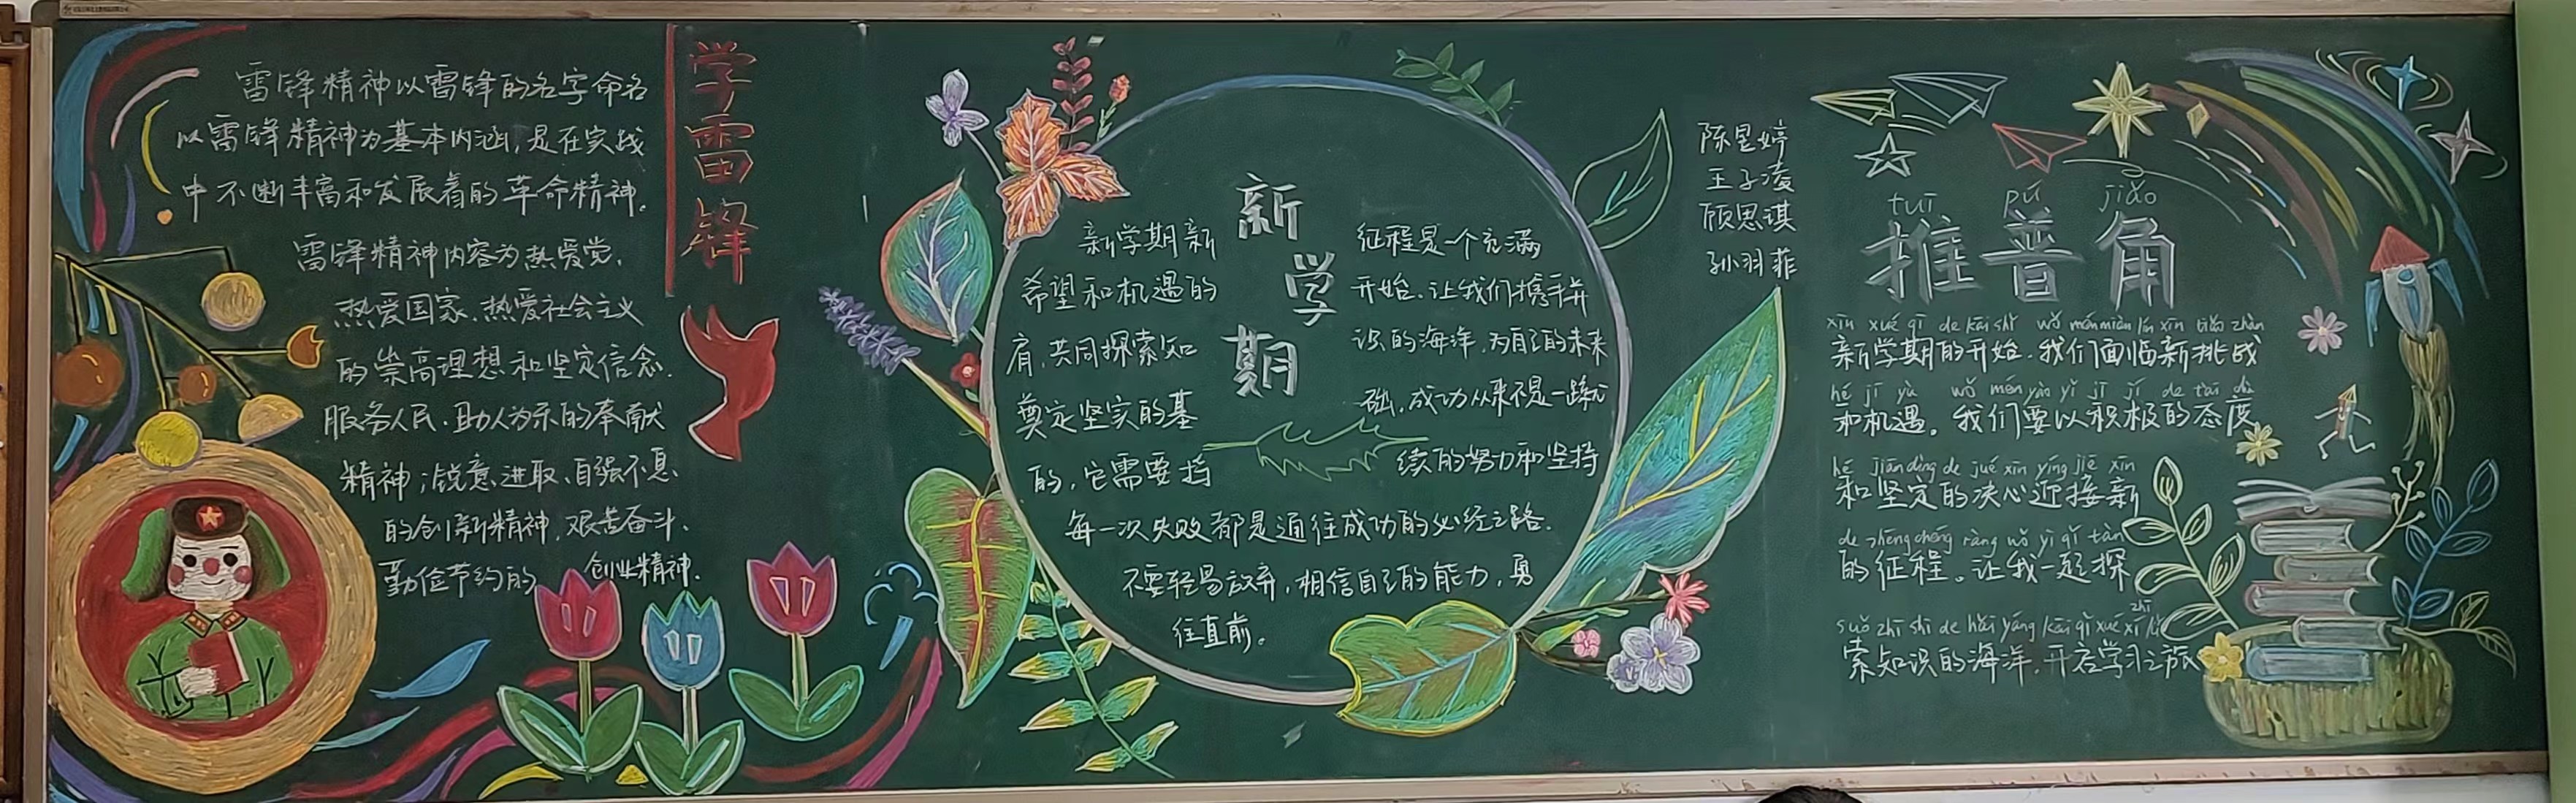 学雷锋
雷锋精神以雷锋的名字命名
以雷锋精神为基本内涵,是在实践
中不断丰富和发展着的革命精神。
雷锋精神内容为热爱党、
热爱国家、热爱社会主义
的崇高理想和坚定信念、
服务人民、助人为乐的奉献
精神;锐意进取、自强不息、
的创新精神,艰苦奋斗、
勤俭节约的 创业精神.
新学期
新学期新 征程是一个充满
希望和机遇的 开始.让我们携手并
肩,共同探索知 识的海洋,为自己的未来
奠定坚实的基 础,成功从来不是一蹴就
的,它需要持 续的努力和坚持
每一次失败都是通往成功的必经之路.
不要轻易放弃,相信自己的能力,勇
往直前。
陈昱婷
王子凌
顾思琪
孙羽菲
tuī pǔ jiǎo
推普角
xīn xué qī de kāi shǐ wǒ mén miàn lín xīn tiǎo zhàn
新学期的开始.我们面临新挑战
hé jī yù wǒ mén yào yǐ jī jí de tài dù
和机遇。我们要以积极的态度
hé jiān dìng de jué xīn yíng jiē xīn
和坚定的决心迎接新
de zhēng chéng ràng wǒ yì qǐ tàn
的征程。让我一起探
suǒ zhī shi de hǎi yáng kāi qǐ xué xí zhī lǚ
索知识的海洋,开启学习之旅